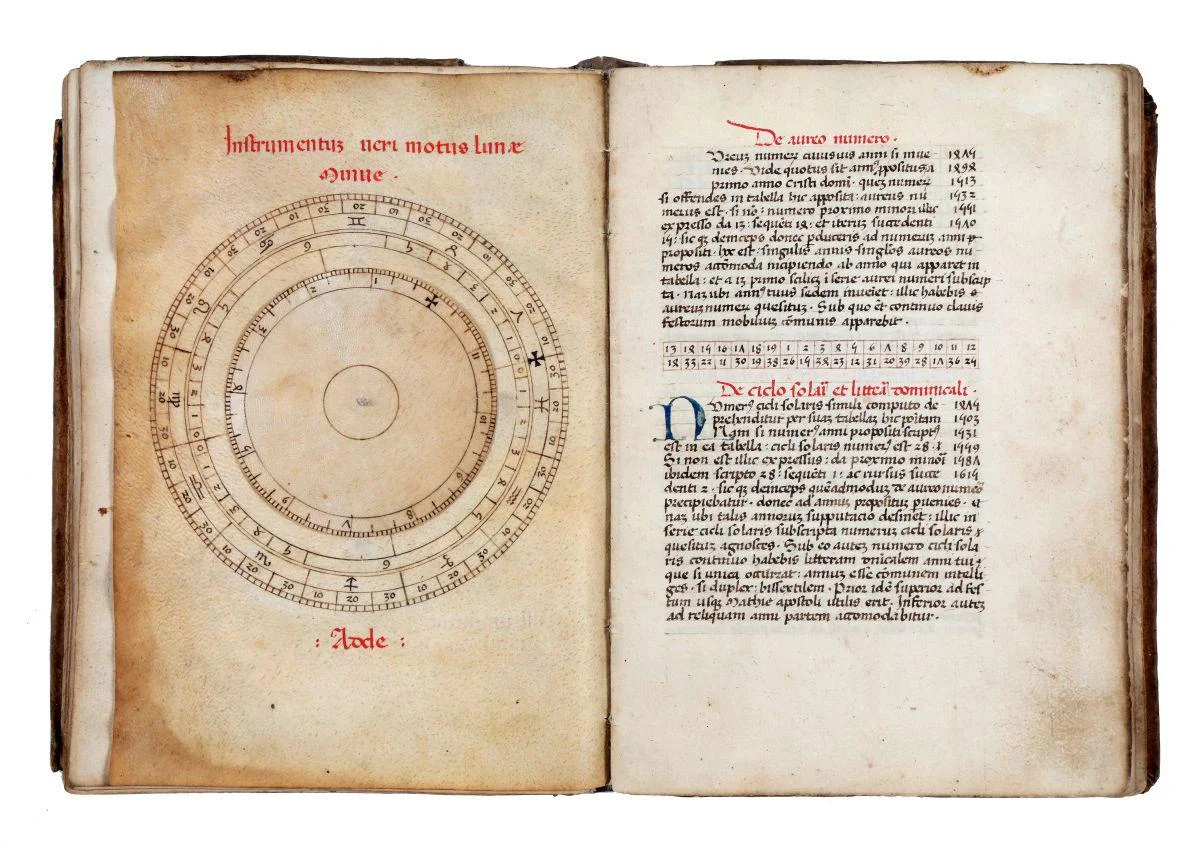 Instrumentuz ueri motus lunæ
Minue ·
: Adde :
De aureo numero ·
Vreuz numerum cuiusuis anni si inue- 1475
nies · Vide quotus sit annus propositus a 1494
primo anno Cristi domini · quez numerum 1513
si offendes in tabella hic apposita : aureus nu 1532
merus est · si no : numero proximo minori illic 1551
expresso da 13 : sequenti 14 : et iterum succedenti 1570
15 : sic qz deinceps donec perduceris ad numerum anni pro-
propositi · hoc est : singulis annis singlos aureos nu
meros accomoda incipiendo ab anno qui apparet in
tabella : et a 13 primo scilicz i serie aurei numeri subscrip
ta · naz ubi annus tuus sedem inueniet : illic habebis
aureuz numerum quesituz · Sub quo et continuo clauis
festorum mobilium comunis apparebit ·
13 14 15 16 17 18 19 1 2 3 4 5 6 7 8 9 10 11 12
14 33 22 11 30 19 38 26 15 34 23 12 31 20 39 28 17 36 25
De ciclo solari et littera dominicali ·
Numerus cicli solaris simili computo de- 1475
prehenditur per suaz tabellaz hic positam 1503
Nam si numerus anni propositi scriptus 1531
est in ea tabella : cicli solaris numerus est 28 · 1559
Si non est illic expressus : da proximo minori 1587
ibidem scripto 28 : sequenti 1 : ac rursus succe 1615
denti 2 · sic qz deinceps quemadmoduz de aureo numero
precipiebatur · donec ad annum propositum peruenies ·
naz ubi talis annoruz supputacio desinet : illic in
serie cicli solaris subscripta numeruz cicli solaris
quesituz agnosces · Sub eo autez numero cicli sola
ris continuo habebis litteram dominicalem anni tui :
que si unica occurrat : annum esse comunem intelli
ges · si duplex : bissextilem · Prior idem superior ad fes
tum usqz Mathie apostoli utilis erit · Inferior autez
ad reliquam anni partem accomodabitur ·